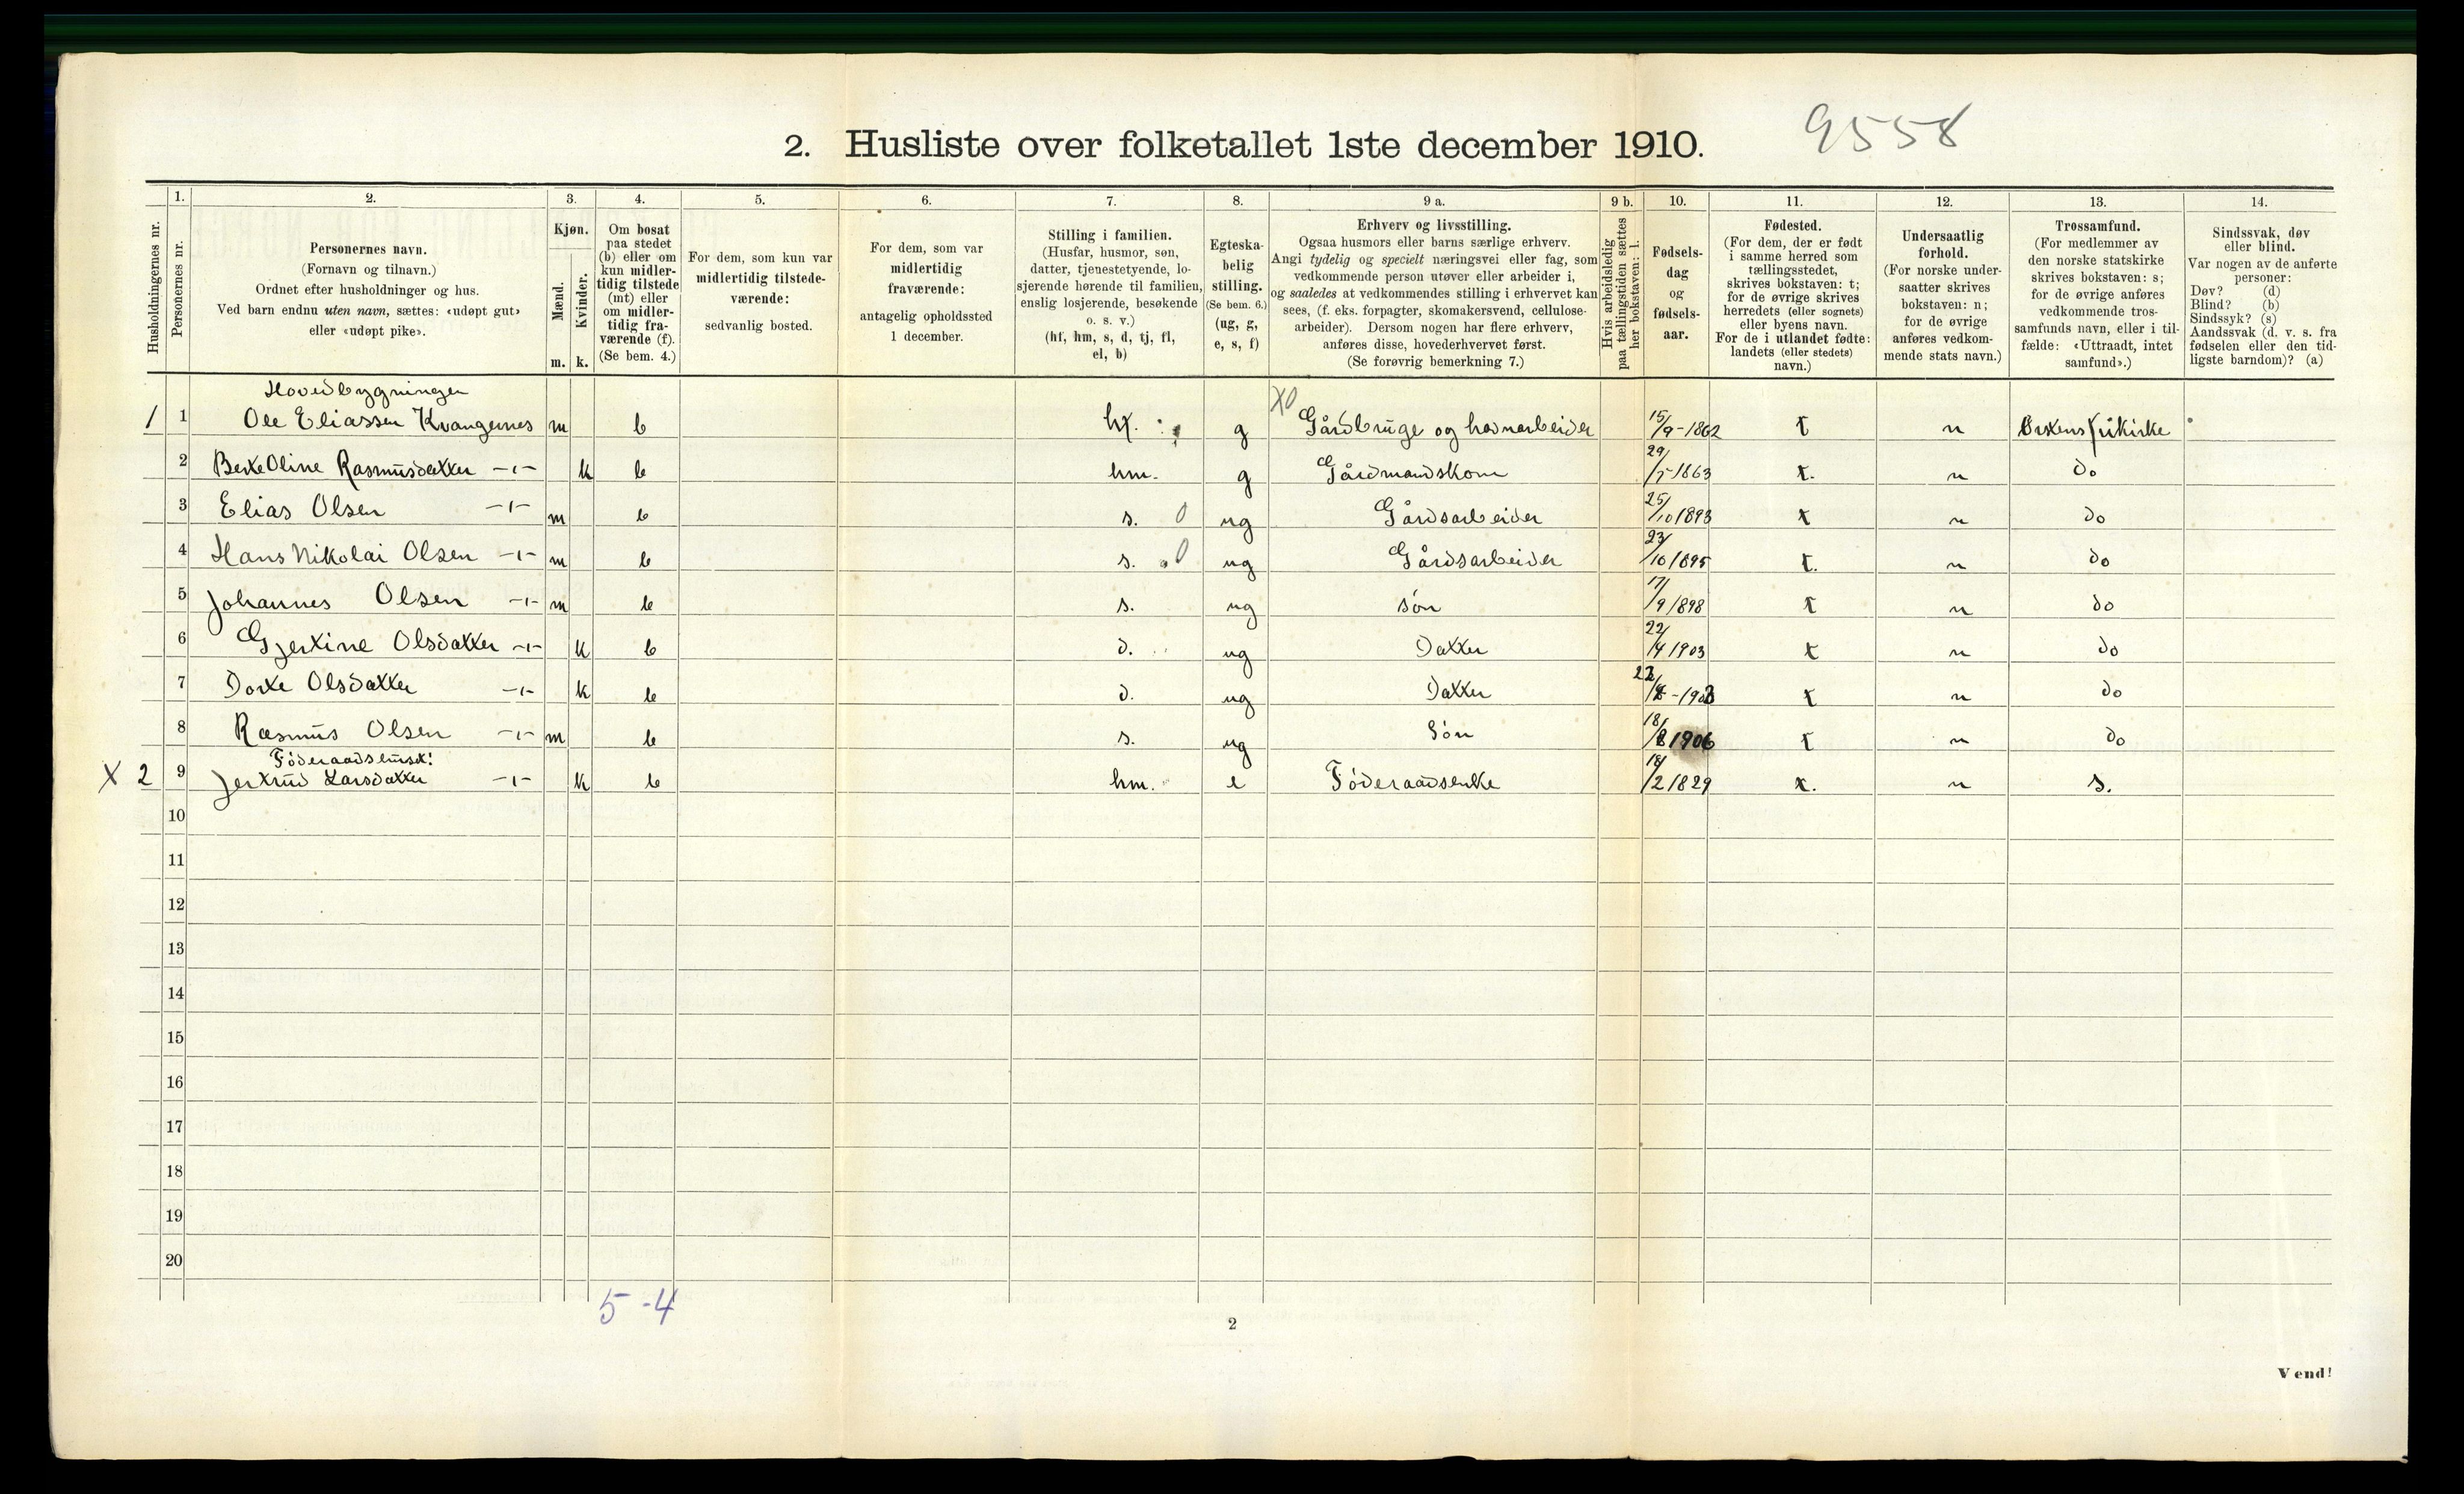 2. Husliste over folketallet 1ste december 1910.
9558
Husholdningernes nr.
1.
Personernes nr.
2.
Personernes navn.
(Fornavn og tilnavn.)
Ordnet efter husholdninger og hus.
Ved barn endnu uten navn, sættes: «udøpt gut»
eller «udøpt pike».
3.
Kjøn.
Mænd.
Kvinder.
m. k.
4.
Om bosat
paa stedet
(b) eller om
kun midler-
tidig tilstede
(mt) eller
om midler-
tidig fra-
værende (f).
(Se bem. 4.)
5.
For dem, som kun var
midlertidig tilstede-
værende:
sedvanlig bosted.
6.
For dem, som var
midlertidig
fraværende:
antagelig opholdssted
1 december.
7.
Stilling i familien.
(Husfar, husmor, søn,
datter, tjenestetyende, lo-
sjerende hørende til familien,
enslig losjerende, besøkende
o. s. v.)
(hf, hm, s, d, tj, fl,
el, b)
8.
Egteska-
belig
stilling.
(Se bem. 6.)
(ug, g,
e, s, f)
9 a.
Erhverv og livsstilling.
Ogsaa husmors eller barns særlige erhverv.
Angi tydelig og specielt næringsvei eller fag, som
vedkommende person utøver eller arbeider i,
og saaledes at vedkommendes stilling i erhvervet kan
sees, (f. eks. forpagter, skomakersvend, cellulose-
arbeider). Dersom nogen har flere erhverv,
anføres disse, hovederhvervet først.
(Se forøvrig bemerkning 7.)
9 b.
Hvis arbeidsledig
paa tællingstiden sættes
her bokstaven: l.
10.
Fødsels-
dag
og
fødsels-
aar.
11.
Fødested.
(For dem, der er født
i samme herred som
tællingsstedet,
skrives bokstaven: t;
for de øvrige skrives
herredets (eller sognets)
eller byens navn.
For de i utlandet fødte:
landets (eller stedets)
navn.)
12.
Undersaatlig
forhold.
(For norske under-
saatter skrives
bokstaven: n;
for de øvrige
anføres vedkom-
mende stats navn.)
13.
Trossamfund.
(For medlemmer av
den norske statskirke
skrives bokstaven: s;
for de øvrige anføres
vedkommende tros-
samfunds navn, eller i til-
fælde: «Uttraadt, intet
samfund».)
14.
Sindssvak, døv
eller blind.
Var nogen av de anførte
personer:
Døv? (d)
Blind? (b)
Sindssyk? (s)
Aandssvak (d. v. s. fra
fødselen eller den tid-
ligste barndom)? (a)
Hovedbygningen
X0
1 1 Ole Eliassen Kvangernes m b hf. g Gårdbruge og havnarbeider 15/9-1862 t n Ørskens frikirke
2 Berte Oline Rasmusdatter -"- k b hm. g Gårdmandskone 29/5-1863 t. n do
3 Elias Olsen -"- m b s. 0 ug Gårdsarbeider 25/10 1893 t n do
4 Hans Nikolai Olsen -"- m b s. 0 ug Gårdsarbeider 23/10 1895 t. n do
5 Johannes Olsen -"- m b s. ug søn 17/9 1898 t n do
6 Gjertine Olsdatter -"- k b d. ug Datter 22/4 1903 t n do
7 Dorte Olsdatter -"- k b d. ug Datter t n do
8 Rasmus Olsen -"- m b s. ug Søn 18/8 1906 t n do
Føderaadshuset:
X 2 9 Jertrud Larsdatter -"- k b hm. e Føderaadsenke 18/2 1829 t. n s.
10
11
12
13
14
15
16
17
18
19
20
5-4
2
Vend!